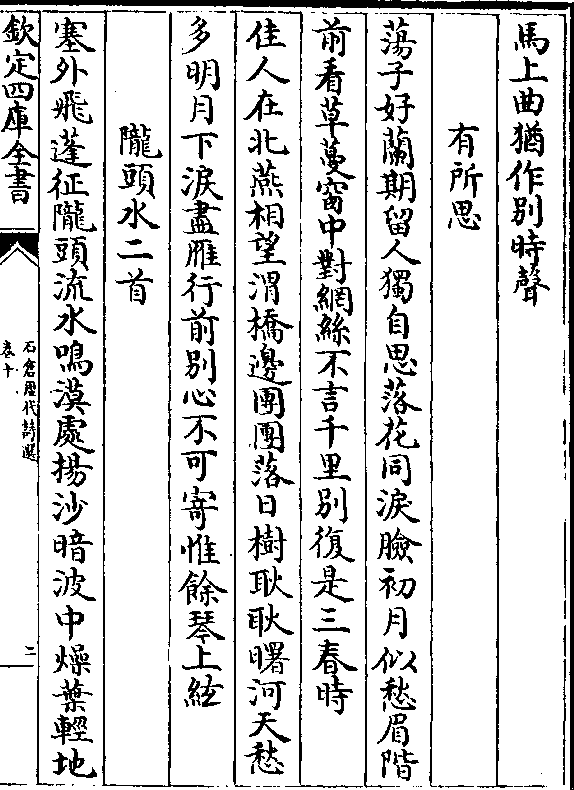 馬上曲猶作別時聲
有所思
蕩子好蘭期留人獨自思落花同淚臉初月似愁眉階
前看草蔓窗中對網絲不言千里別復是三春時
佳人在北燕相望渭橋邊團團落日樹耿耿曙河天愁
多明月下淚盡雁行前別心不可寄惟餘琴上絃
隴頭水二首
塞外飛蓬征隴頭流水鳴漠處揚沙暗波中燥葉輕地
欽定四庫全書
石倉歷代詩選
卷十
三